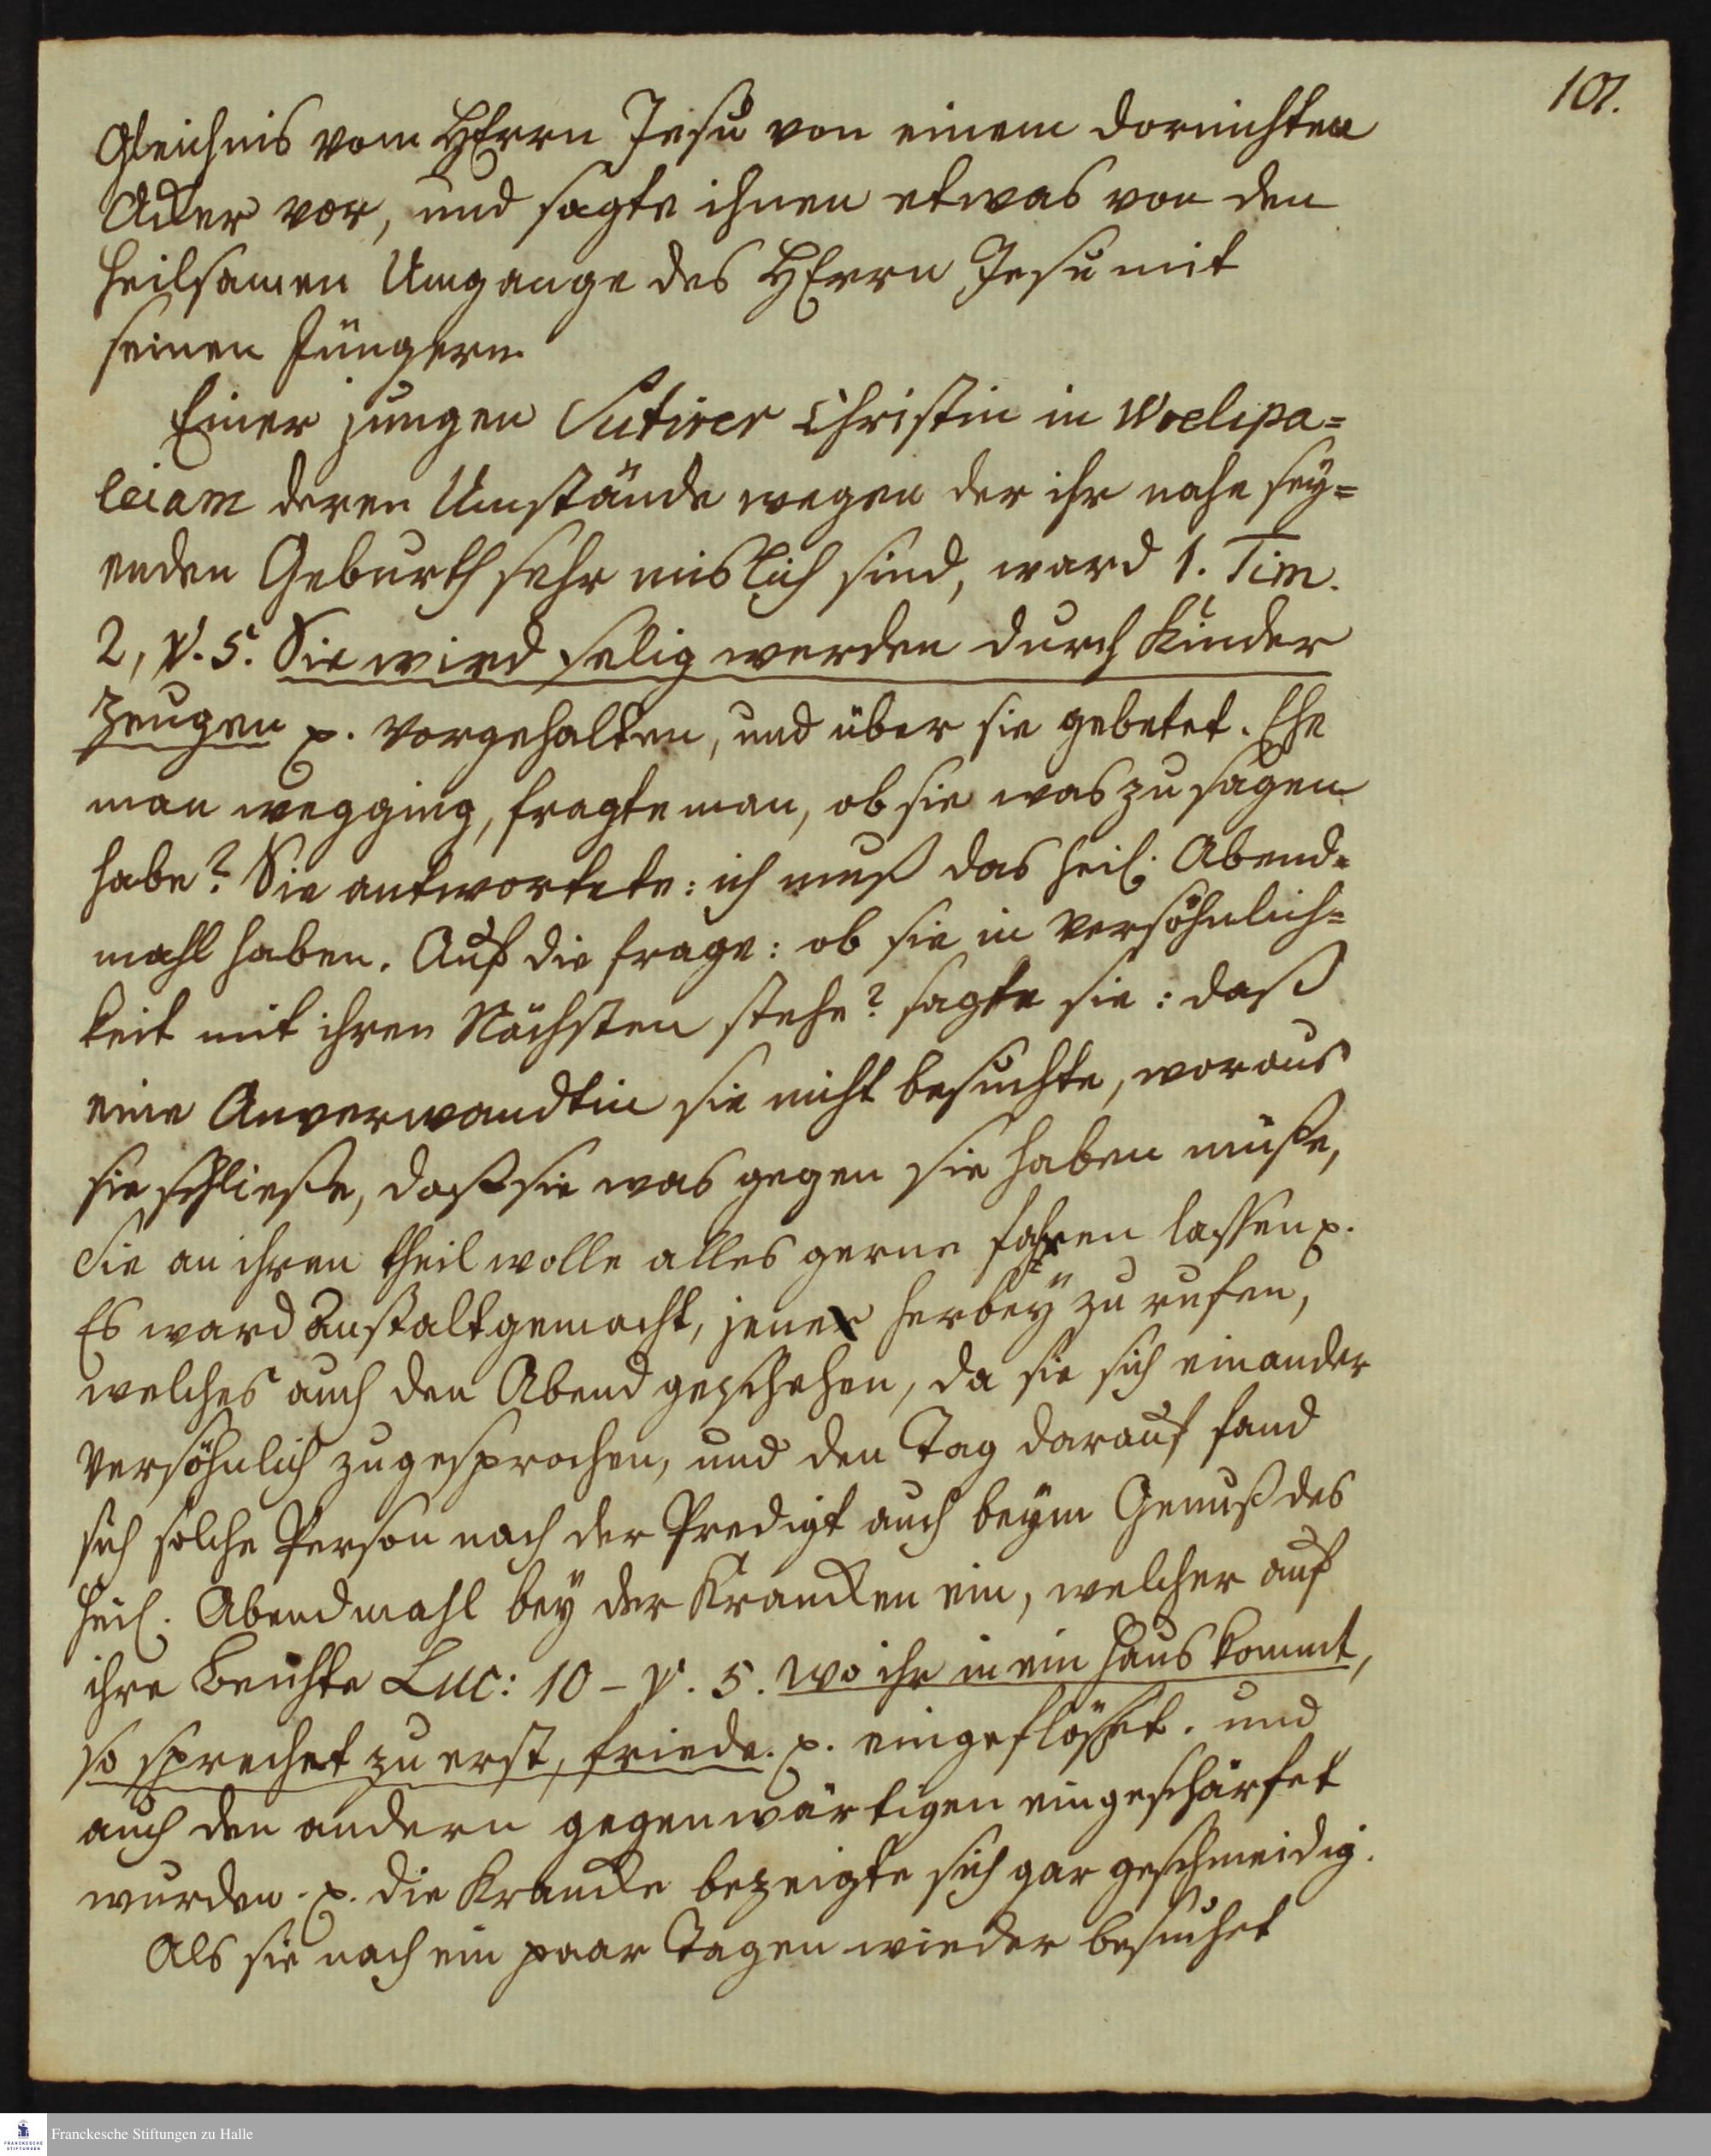 101.
Gleichnis vom HErrn Jesu von einem dornichten
Acker vor, und sagte ihnen etwas von den
heilsamen Umgange des HErrn Jesu mit
seinen Jüngern.
Einer jungen Sutirer Christin in Woelipa=
leiam deren Umstände wegen der ihr nahe sey=
enden Geburth sehr mislich sind, ward 1. Tim.
2, v. 5. Sie wird selig werden durch Kinder
zeugen p. vorgehalten, und über sie gebetet. Ehe
man wegging, fragte man, ob sie was zu sagen
habe? Sie antwortete: ich muß das heil. Abend=
mahl haben. Auf die frage: ob sie in Versöhnlich=
keit mit ihren Nächsten stehe? sagte sie: daß
eine Anverwandtin sie nicht besuchte, woraus
sie schließe, daß sie was gegen sie haben müße,
Sie an ihren theil wolle alles gerne fahren lassen p.
Es ward Anstalt gemacht, jene herbey zu rufen,
welches auch den Abend geschehen, da sie sich einander
versöhnlich zugesprochen, und den Tag darauf fand
sich solche Person nach der Predigt auch beym Genuß des
heil. Abendmahl bey der Krancken ein, welcher auf
ihre Beichte Luc: 10 - v. 5. wo ihr in ein Haus kommt,
so sprechet zu erst, friede. p. eingeflößet. und
auch den andern gegenwärtigen eingeschärfet
wurden. p. die Krancke bezeigte sich gar geschmeidig.
Als sie nach ein paar Tagen wieder besuchet
Franckesche Stiftungen zu Halle
FRANCKESCHE STIFTUNGEN